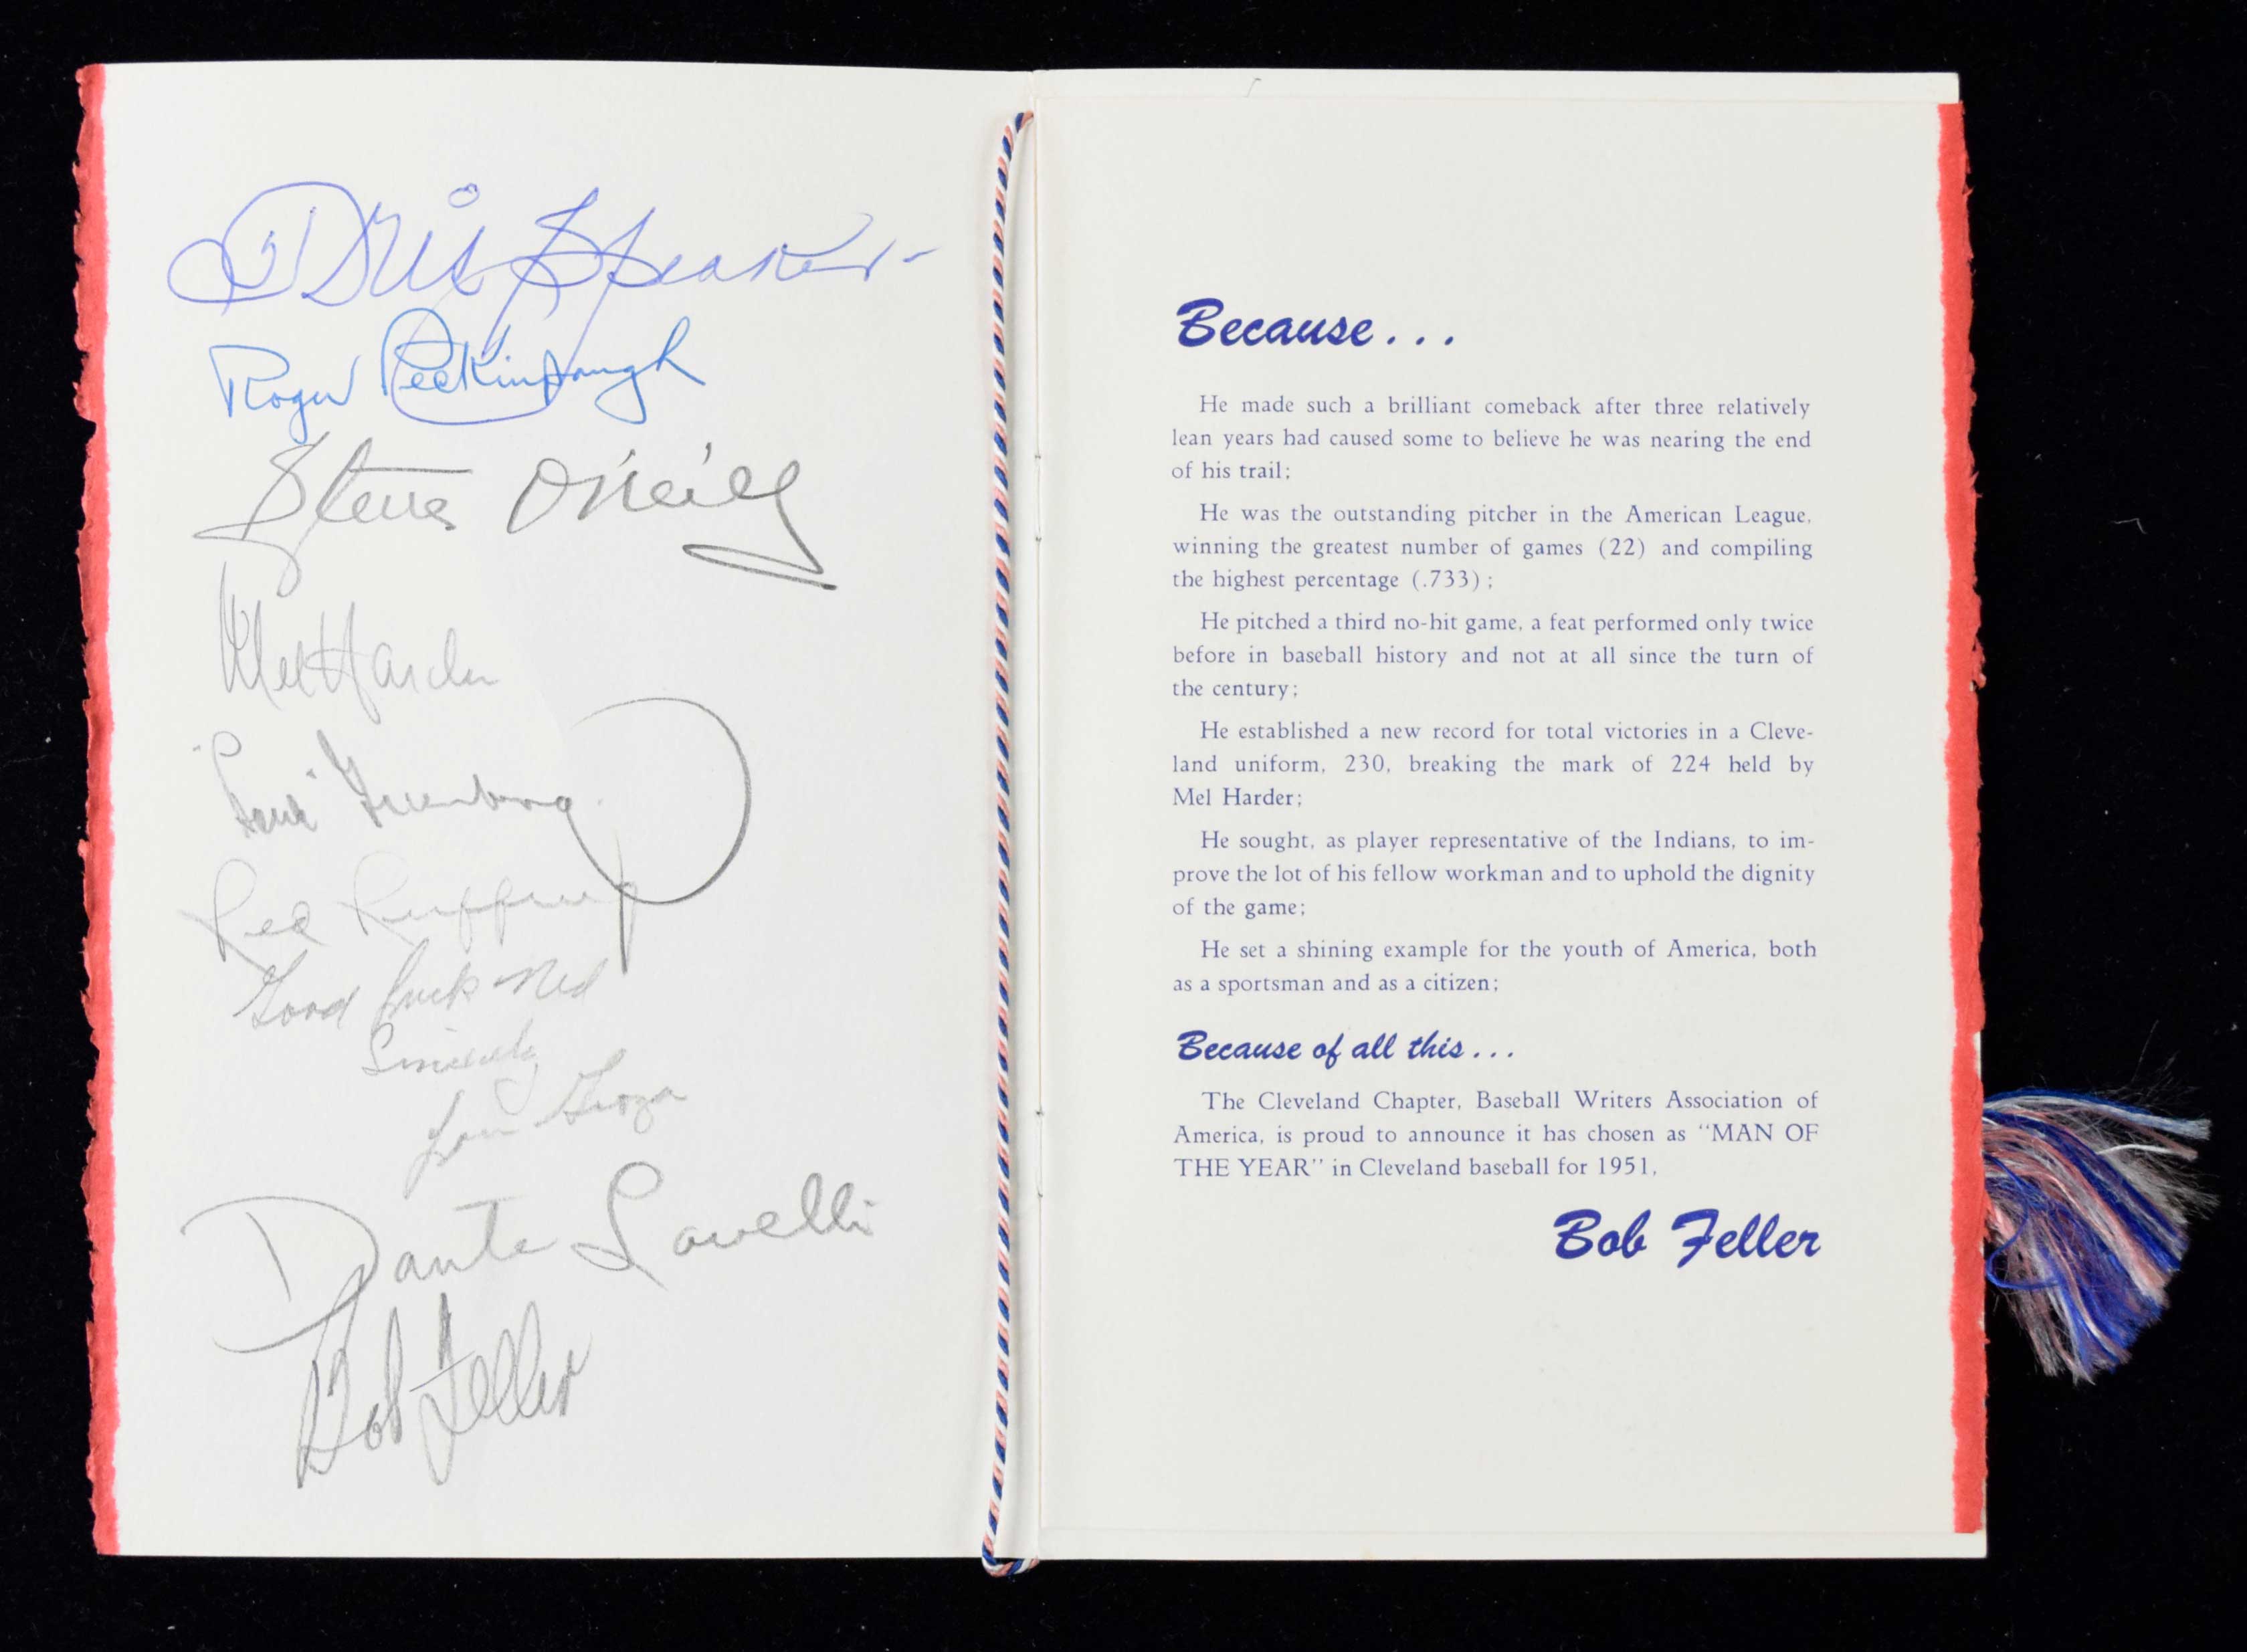 Tris Speaker
Roger Peckinpaugh
Steve O'Neill
Mel Harder
"Hank" Greenberg
Red Ruffing
Good Luck Ned
Sincerely
Lou Groza
Dante Lavelli
Bob Feller
Because...
He made such a brilliant comeback after three relatively
lean years had caused some to believe he was nearing the end
of his trail;
He was the outstanding pitcher in the American League,
winning the greatest number of games (22) and compiling
the highest percentage (.733);
He pitched a third no-hit game, a feat performed only twice
before in baseball history and not at all since the turn of
the century;
He established a new record for total victories in a Cleve-
land uniform, 230, breaking the mark of 224 held by
Mel Harder;
He sought, as player representative of the Indians, to im-
prove the lot of his fellow workman and to uphold the dignity
of the game;
He set a shining example for the youth of America, both
as a sportsman and as a citizen;
Because of all this...
The Cleveland Chapter, Baseball Writers Association of
America, is proud to announce it has chosen as "MAN OF
THE YEAR" in Cleveland baseball for 1951,
Bob Feller